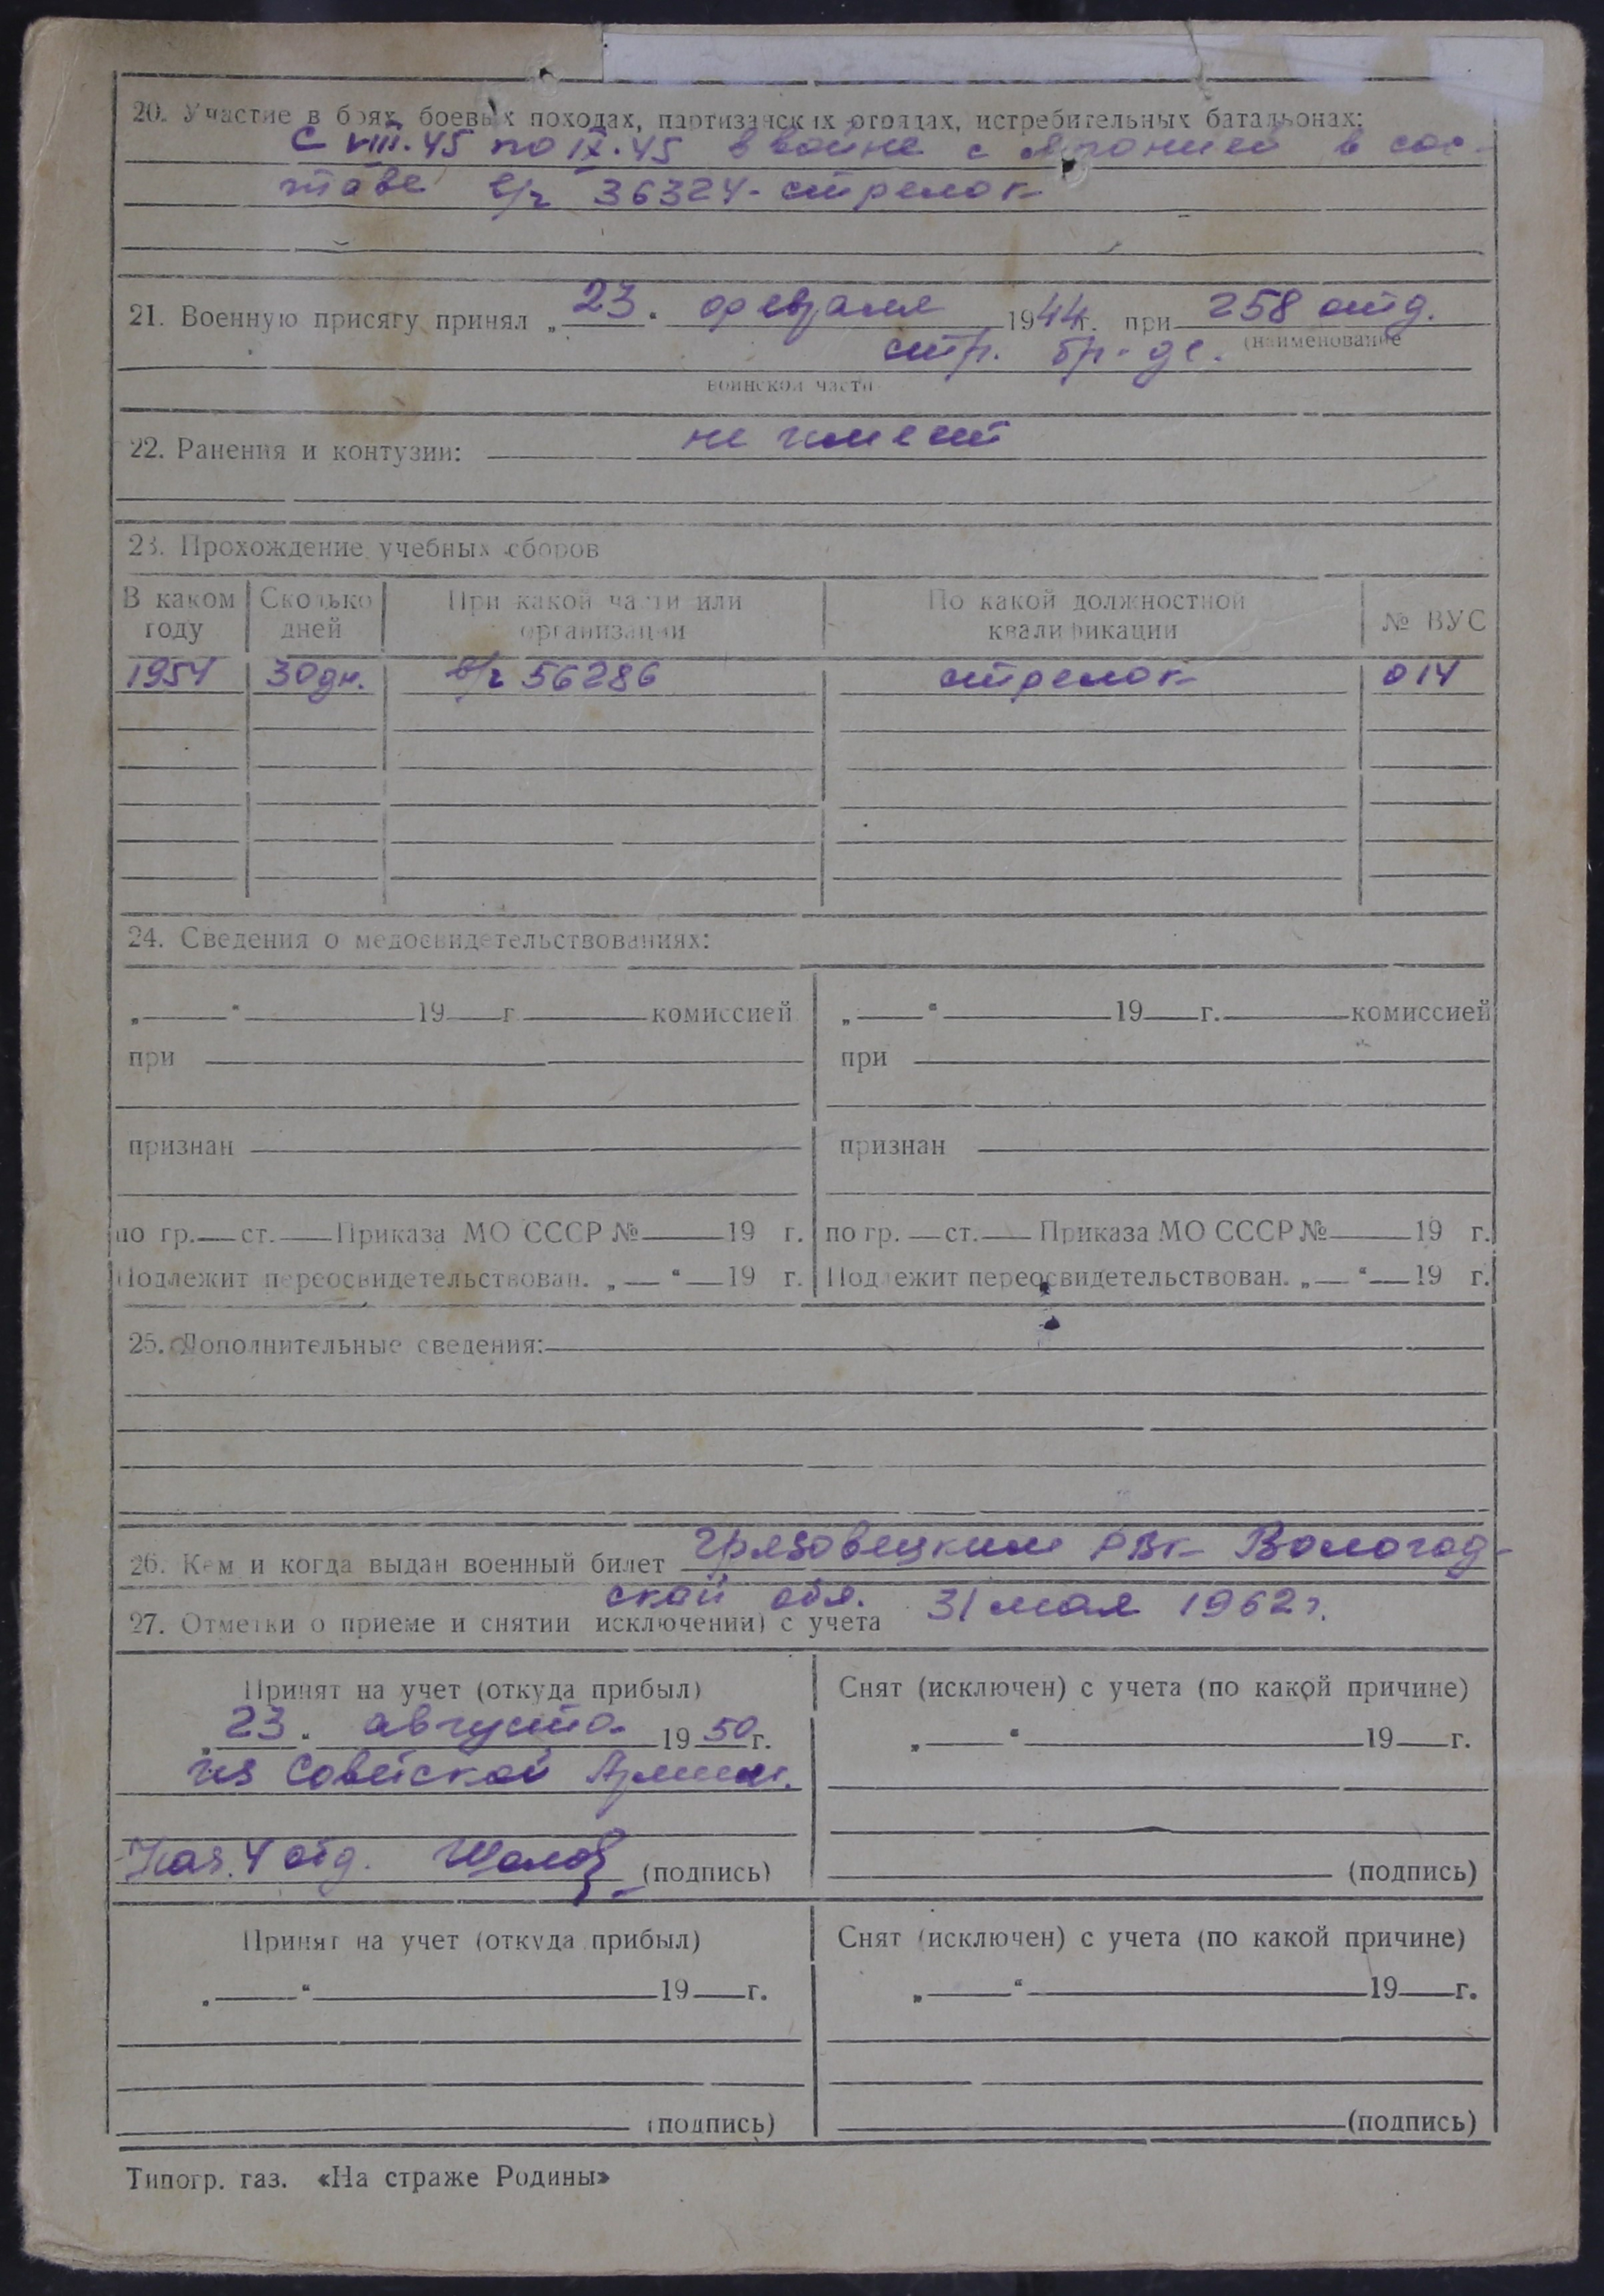 20. Участие в боях, боевых походах, партизанских отрядах, истребительных батальонах:
с VIII.45 по IX.45 в войне с Японией в сос-
таве в/ч 36324 - стрелок
21. Военную присягу принял „23“ февраля 1944 г. при 258 отд.
стр. бр-де. (наименование
воинской части
22. Ранения и контузии: не имеет
23. Прохождение учебных сборов
В каком году Сколько дней При какой части или организации По какой должностной квалификации № ВУС
1954 30 дн. в/ч 56286 стрелок 014
24. Сведения о медосвидетельствованиях:
„ “ 19 г. комиссией „ “ 19 г. комиссией
при при
признан признан
по гр. ст. Приказа МО СССР № 19 г. по гр. ст. Приказа МО СССР № 19 г.
Подлежит переосвидетельствован. „ “ 19 г. Подлежит переосвидетельствован. „ “ 19 г.
25. Дополнительные сведения:
26. Кем и когда выдан военный билет Грязовецким РВК Вологод-
ской обл. 31 мая 1962 г.
27. Отметки о приеме и снятии исключении) с учета
Принят на учет (откуда прибыл) Снят (исключен) с учета (по какой причине)
„23“ августа 1950 г. „ “ 19 г.
из Советской Армии.
Нач. 4 отд. (подпись) (подпись)
Принят на учет (откуда прибыл) Снят (исключен) с учета (по какой причине)
„ “ 19 г. „ “ 19 г.
(подпись) (подпись)
Типогр. газ. «На страже Родины»